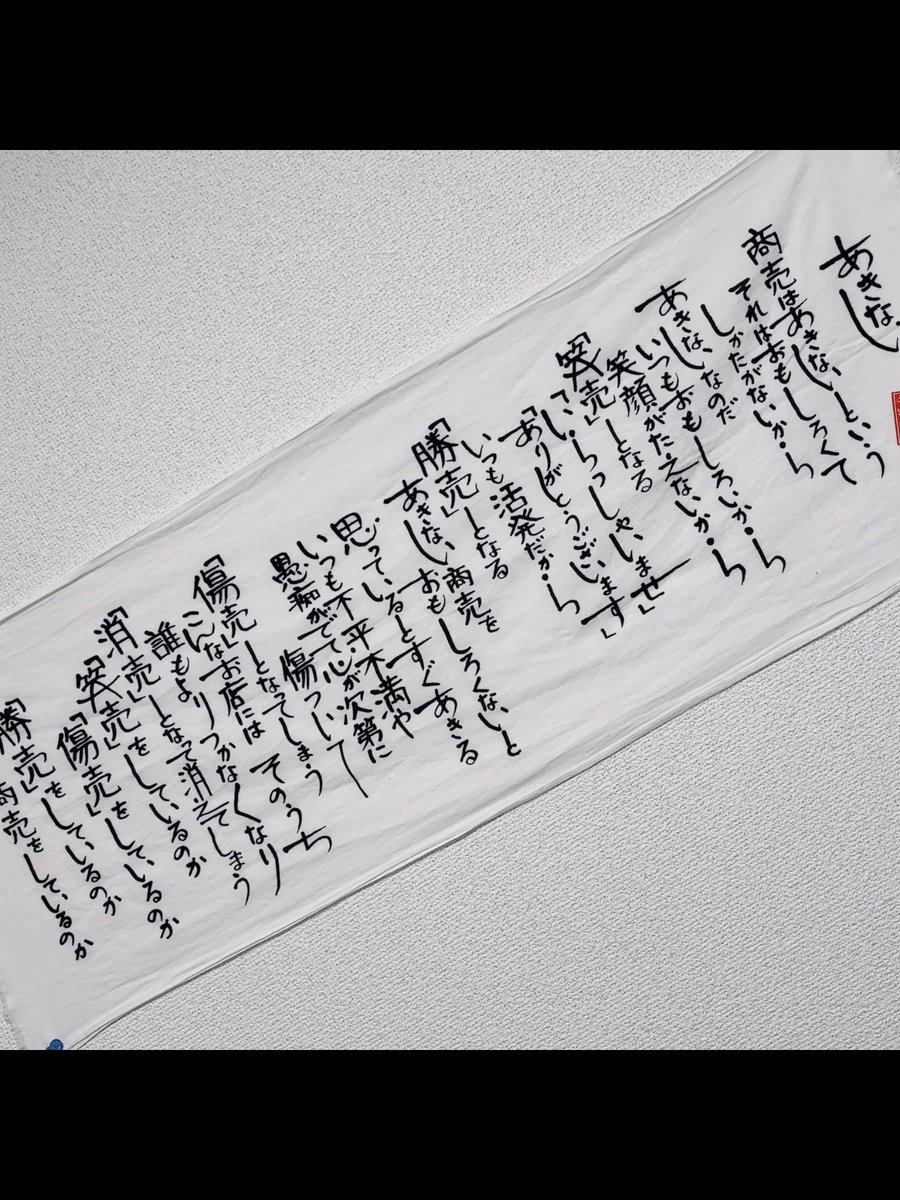 あきない
商売はあきないという
それはおもしろくて
しかたがないから
あきないなのだ
いつもおもしろいから
笑顔がたえないから
「笑売」となる
「いらっしゃいませ」
「ありがとうございます」
いつも活発だから
「勝売」となる
あきない商売を
おもしろくないと
思っているとすぐあきる
いつも不平不満や
愚痴がでて心が次第に
傷ついて
「傷売」となってしまう
こんなお店には そのうち
誰もよりつかなくなり
「消売」となって消えてしまう
「笑売」をしているのか
「傷売」をしているのか
「勝売」をしているのか
商売をしているのか